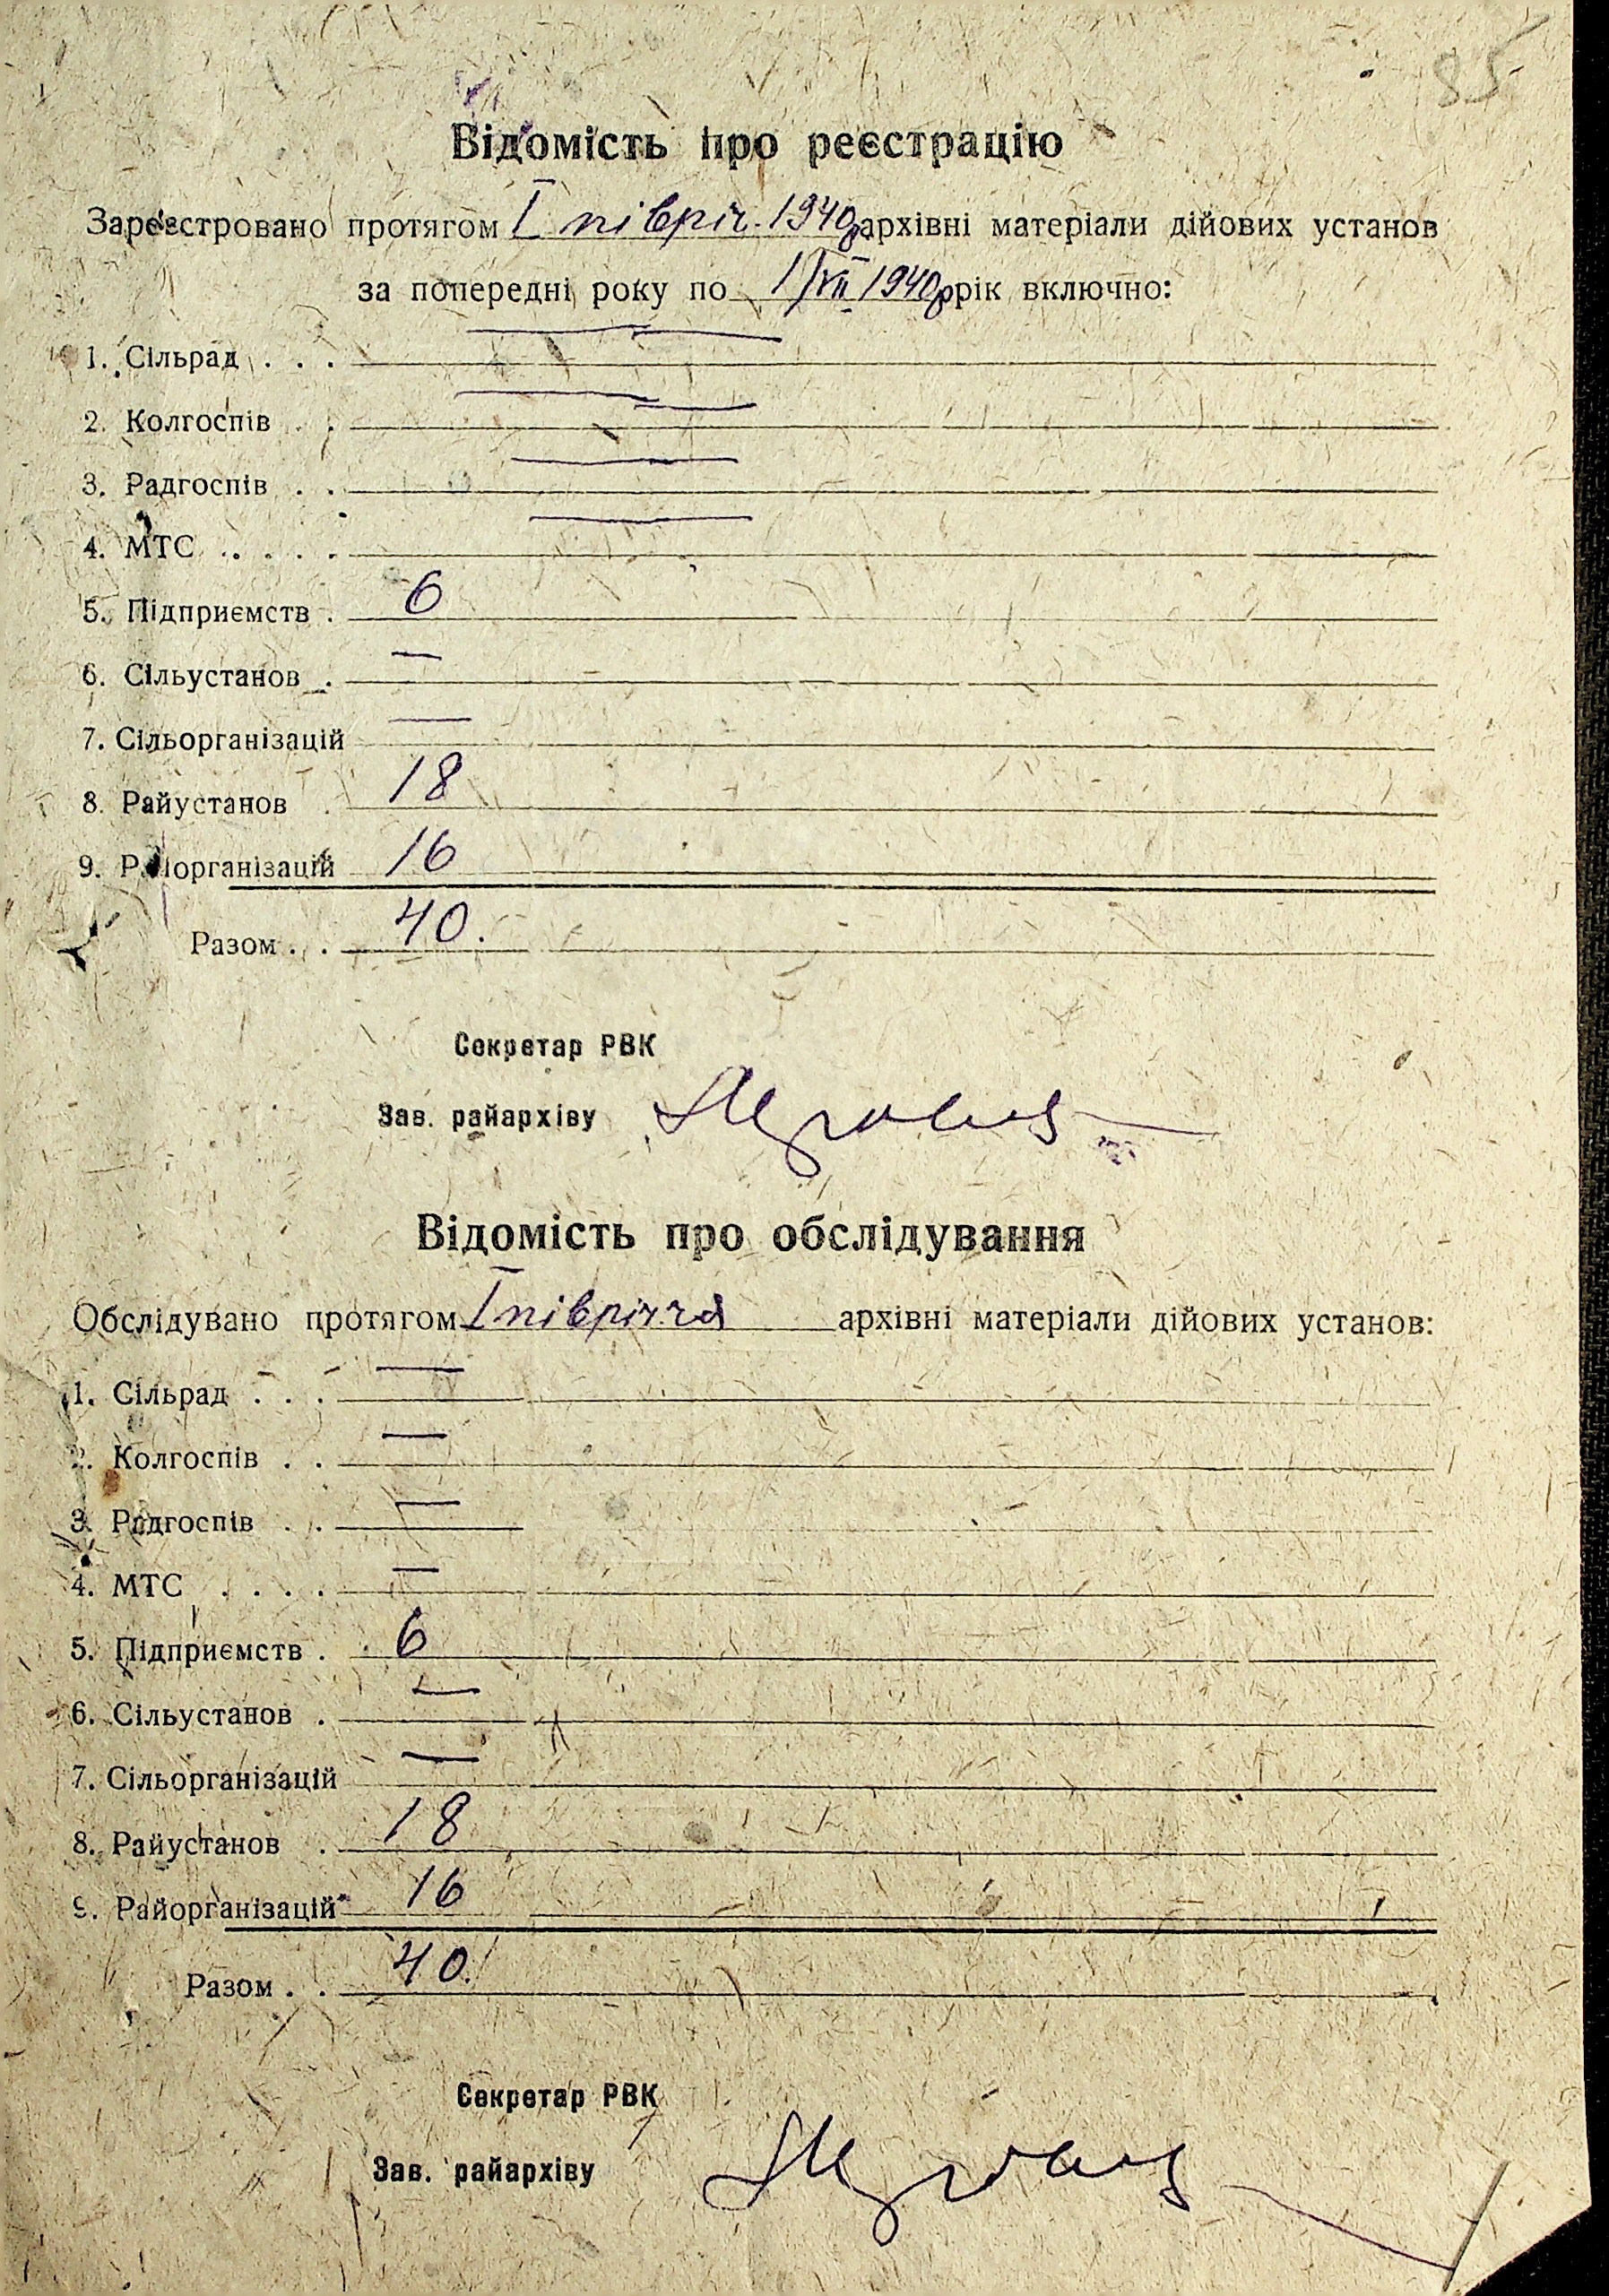 85
Відомість про реєстрацію
Зареєстровано протягом I півріч. 1940р архівні матеріали дійових установ
за попередні року по 1/VII 1940р рік включно:
1. Сільрад . . . —
2. Колгоспів . . —
3. Радгоспів . . —
4. МТС . . . . —
5. Підприємств . 6
6. Сільустанов . —
7. Сільорганізацій —
8. Райустанов . 18
9. Райорганізацій 16
Разом . . 40.
Секретар РВК
Зав. райархіву
Відомість про обслідування
Обслідувано протягом I півріччя архівні матеріали дійових установ:
1. Сільрад . . . —
2. Колгоспів . . —
3. Радгоспів . . —
4. МТС . . . . —
5. Підприємств . 6
6. Сільустанов . —
7. Сільорганізацій —
8. Райустанов . 18
9. Райорганізацій 16
Разом . . 40.
Секретар РВК
Зав. райархіву